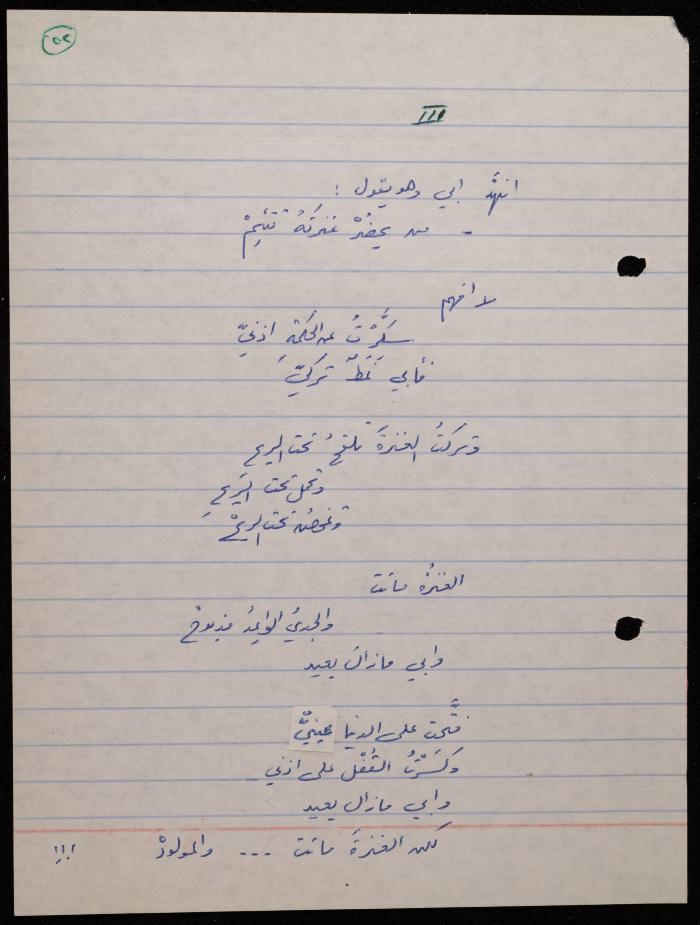 ٥٢
III
تنهَّد ابي وهو يقول :
- من يحضُرْ عنزتَهُ تتئِمْ
لا افهم
سكَّرْتُ عن الحكمة اذنيّ
فأبي نمَطٌ تركيّ
وتركتُ العنزةَ تلقحُ تحت الريح
وتحمل تحت الريحِ
وتمخضُ تحت الريحْ
العنزةُ ماتت
والجديُ الواعِدُ مذبوحْ
وابي مازال يعيد
فتَّحت على الدنيا عينيّْ
وكسَّرْتُ القُفْل على اذني
وابي مازال يعيد
لكن العنزةَ ماتت ... والمولودْ !!!